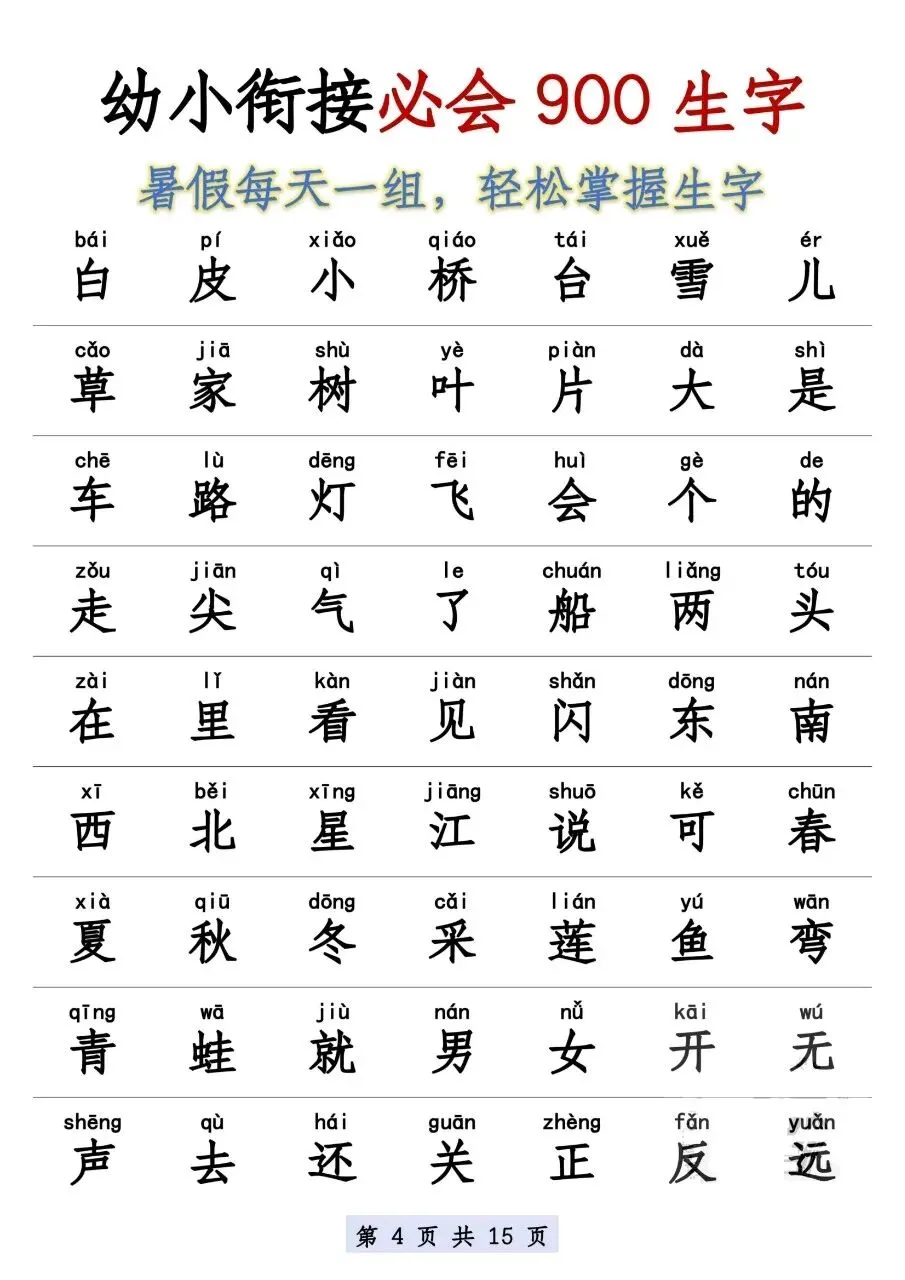 幼小衔接必会900生字
暑假每天一组，轻松掌握生字
bái pí xiǎo qiáo tái xuě ér
白 皮 小 桥 台 雪 儿
cǎo jiā shù yè piàn dà shì
草 家 树 叶 片 大 是
chē lù dēng fēi huì gè de
车 路 灯 飞 会 个 的
zǒu jiān qì le chuán liǎng tóu
走 尖 气 了 船 两 头
zài lǐ kàn jiàn shǎn dōng nán
在 里 看 见 闪 东 南
xī běi xīng jiāng shuō kě chūn
西 北 星 江 说 可 春
xià qiū dōng cǎi lián yú wān
夏 秋 冬 采 莲 鱼 弯
qīng wā jiù nán nǚ kāi wú
青 蛙 就 男 女 开 无
shēng qù hái guān zhèng fǎn yuǎn
声 去 还 关 正 反 远
第 4 页 共 15 页